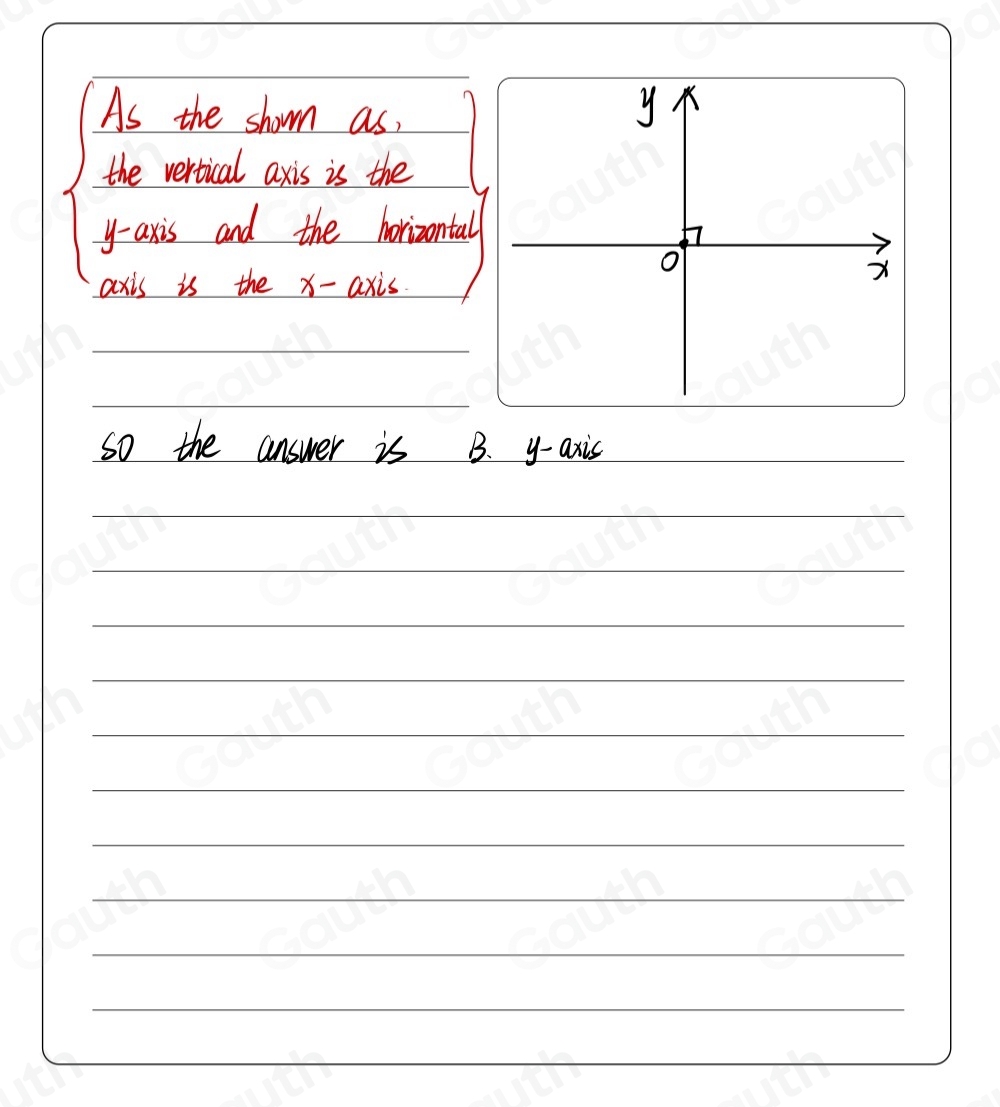 As the shown as,
the vertical axis is the
y-axis and the horizontal
axis is the x-axis.
y
O
x
so the answer is B. y-axis
Gauth